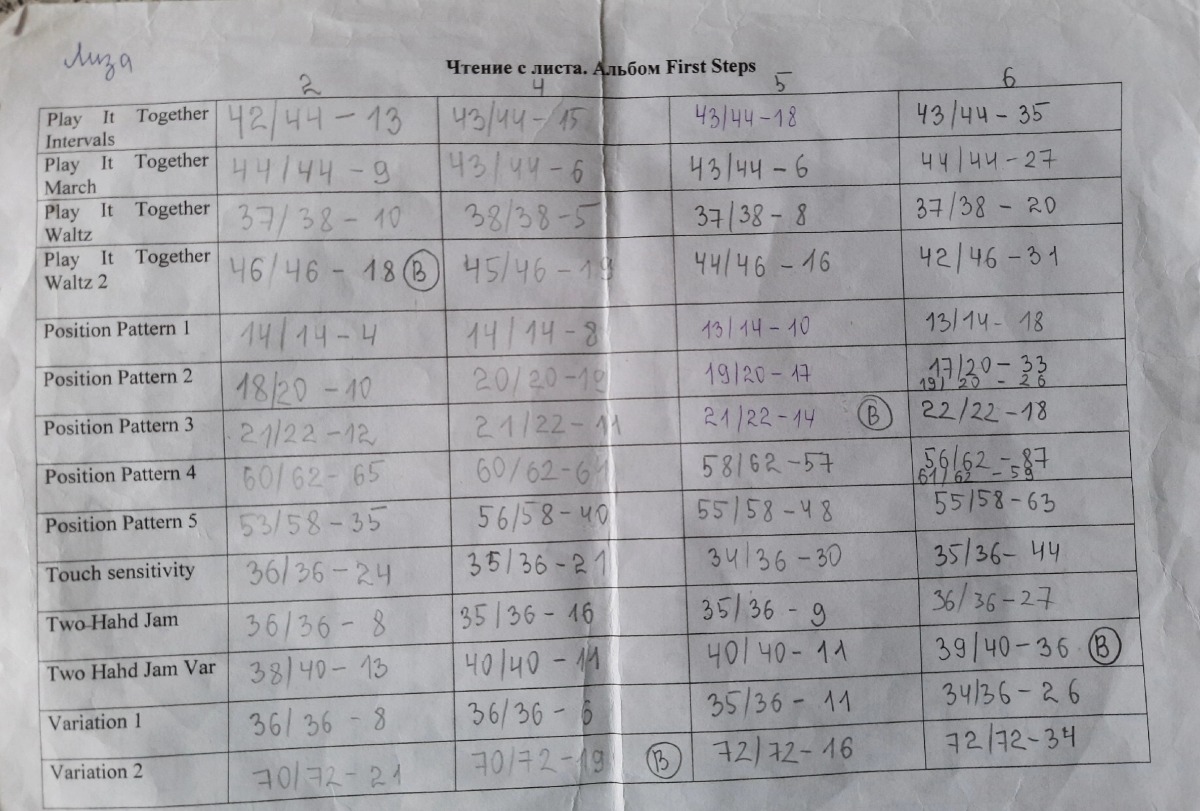 Лиза
Чтение с листа. Альбом First Steps
2 4 5 6
Play It Together Intervals 42/44 - 13 43/44 - 15 43/44 - 18 43/44 - 35
Play It Together March 44/44 - 9 43/44 - 6 43/44 - 6 44/44 - 27
Play It Together Waltz 37/38 - 10 38/38 - 5 37/38 - 8 37/38 - 20
Play It Together Waltz 2 46/46 - 18 В 45/46 - 19 44/46 - 16 42/46 - 31
Position Pattern 1 14/14 - 4 14/14 - 8 13/14 - 10 13/14 - 18
Position Pattern 2 18/20 - 10 20/20 - 19 19/20 - 17 17/20 - 33
19/20 - 26
Position Pattern 3 21/22 - 12 21/22 - 11 21/22 - 14 В 22/22 - 18
Position Pattern 4 60/62 - 65 60/62 - 61 58/62 - 57 56/62 - 87
61/62 - 59
Position Pattern 5 53/58 - 35 56/58 - 40 55/58 - 48 55/58 - 63
Touch sensitivity 36/36 - 24 35/36 - 21 34/36 - 30 35/36 - 44
Two Hahd Jam 36/36 - 8 35/36 - 16 35/36 - 9 36/36 - 27
Two Hahd Jam Var 38/40 - 13 40/40 - 11 40/40 - 11 39/40 - 36 В
Variation 1 36/36 - 8 36/36 - 6 35/36 - 11 34/36 - 26
Variation 2 70/72 - 21 70/72 - 19 В 72/72 - 16 72/72 - 34